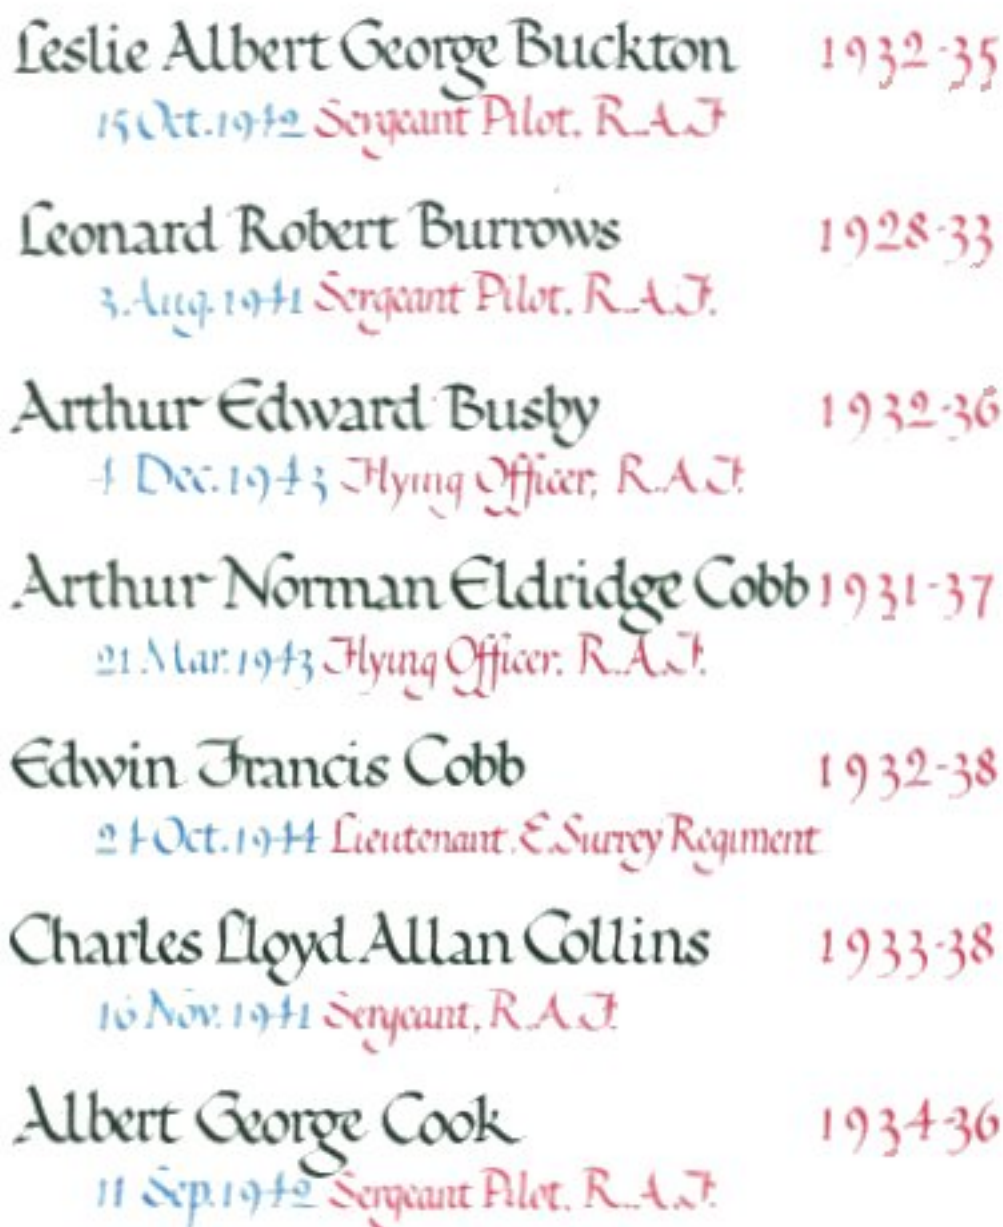 Leslie Albert George Buckton 1932-35
15 Oct. 1942 Sergeant Pilot, R.A.F
Leonard Robert Burrows 1928-33
3. Aug. 1941 Sergeant Pilot, R.A.F.
Arthur Edward Busby 1932-36
4 Dec. 1943 Flying Officer, R.A.F.
Arthur Norman Eldridge Cobb 1931-37
21 Mar. 1943 Flying Officer, R.A.F.
Edwin Francis Cobb 1932-38
24 Oct. 1944 Lieutenant, E.Surrey Regiment
Charles Lloyd Allan Collins 1933-38
16 Nov. 1941 Sergeant, R.A.F.
Albert George Cook 1934-36
11 Sep. 1942 Sergeant Pilot, R.A.F.